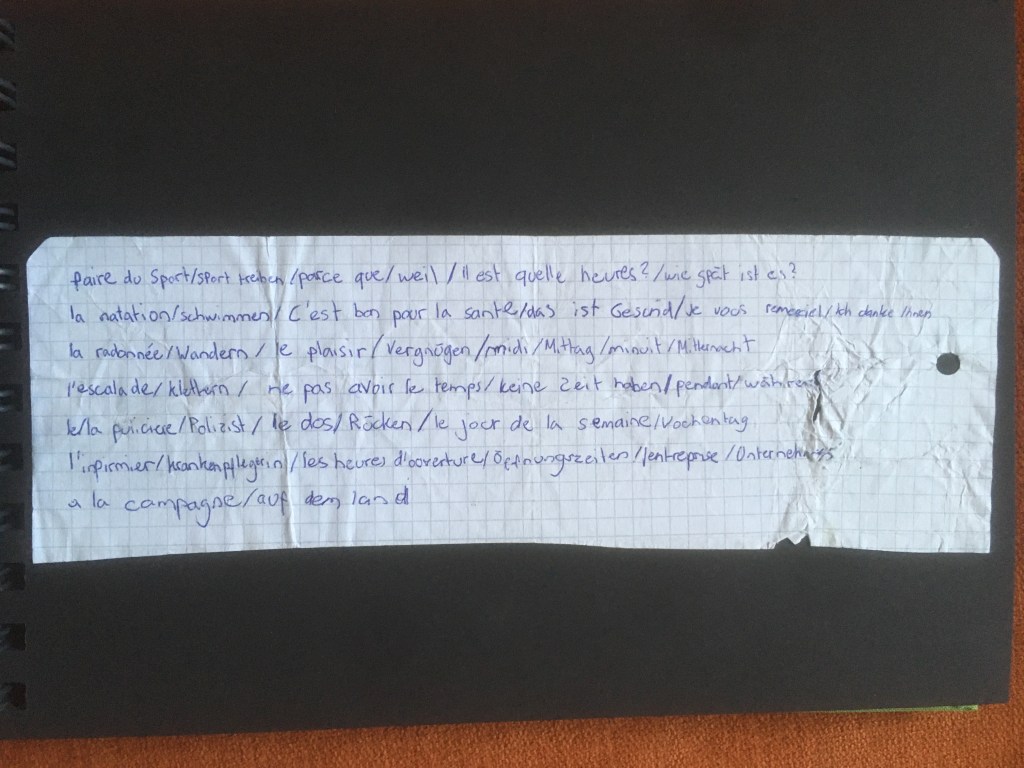 faire du Sport/sport treiben/parce que/weil/Il est quelle heures?/wie spät ist es?
la natation/schwimmen/C'est bon pour la sante/das ist Gesund/Je vous remerciel/Ich danke Ihnen
la radonnée/Wandern/le plaisir/Vergnügen/midi/Mittag/minuit/Mitternacht
l'escalade/klettern/ne pas avoir le temps/keine Zeit haben/pendant/
le/la /Polizist/le dos/Rücken/le jour de la semaine/Wochentag
l'infirmier/krankenpflegerin/les heures d'ouverture/Öffnungszeiten/
a la campagne/auf dem land